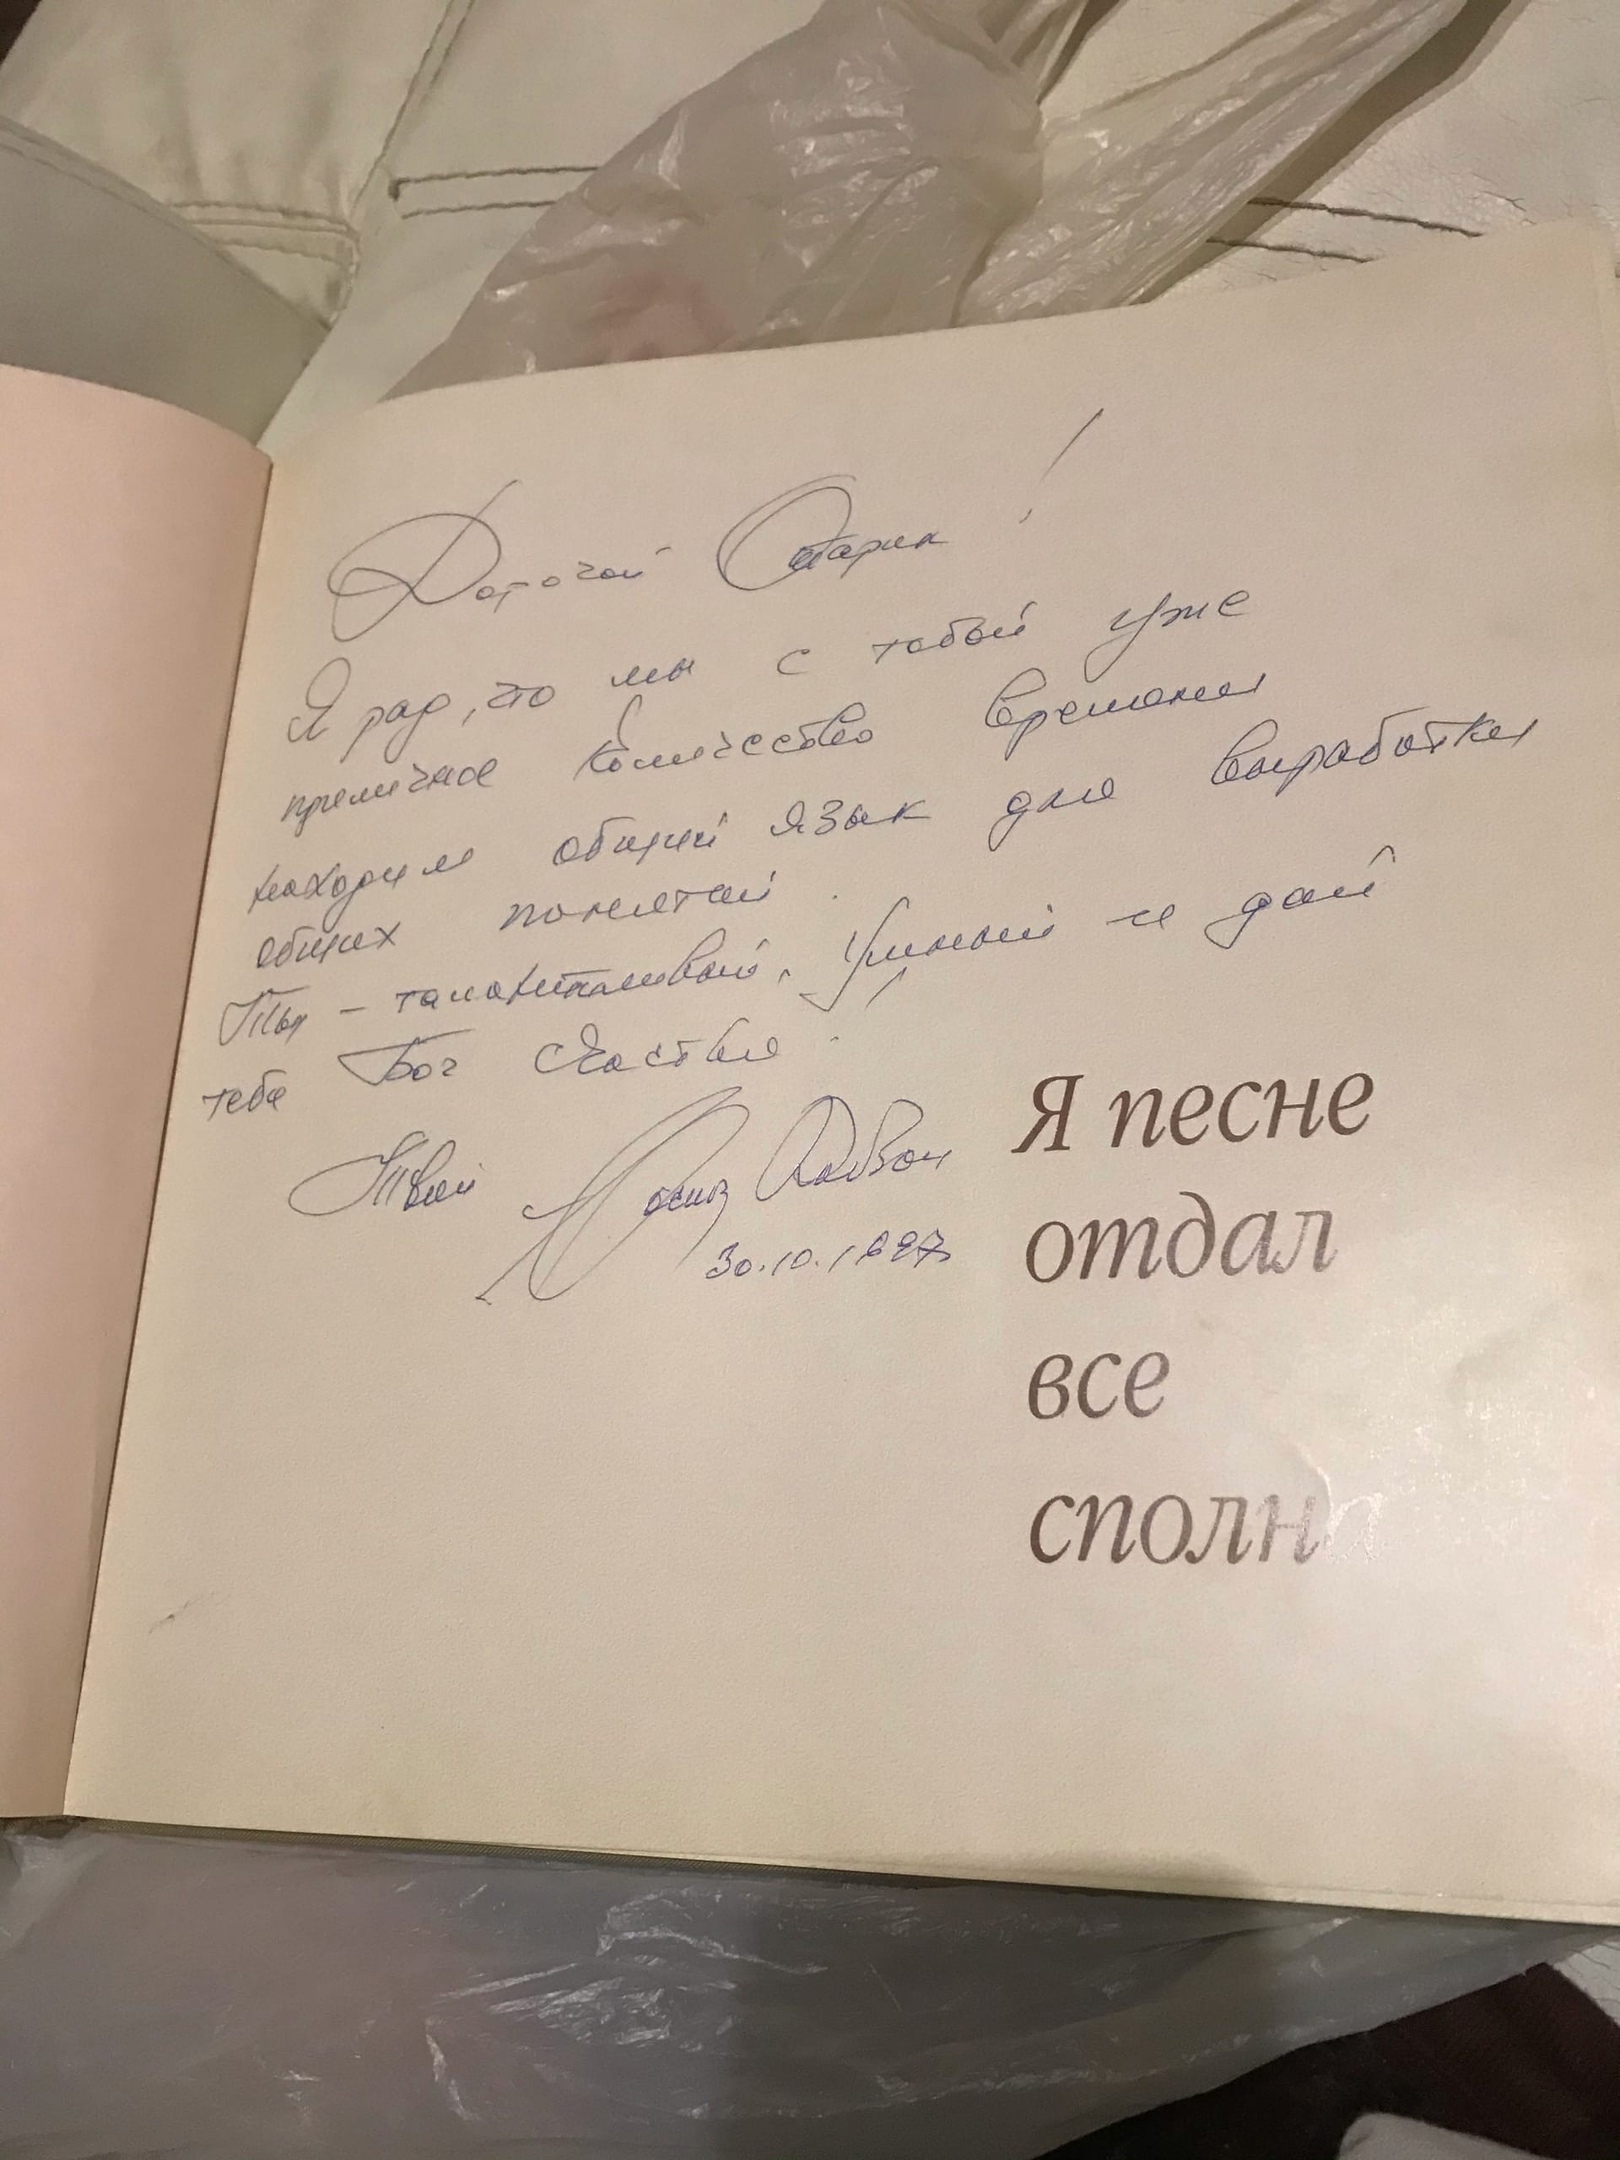 Дорогой Старик!
Я рад, что мы с тобой уже
приличное количество времени
находим общий язык для выработки
общих понятий.
Ты – талантливый, умный и дай
тебе Бог счастья!
Твой Иосиф Кобзон
30.10.1997
Я песне
отдал
все
сполна